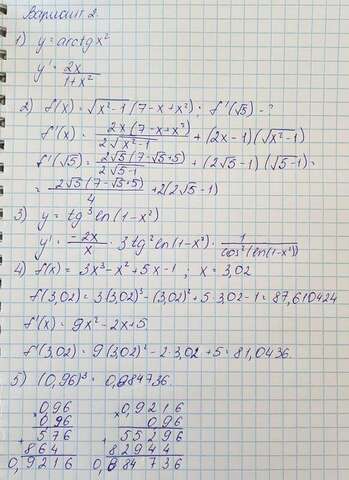 Вариант 2.
1) y = arctg x²
y' = 2x / 1+x²
2) f(x) = √(x²-1) (7-x+x²); f'(√5) - ?
f'(x) = 2x(7-x+x²) / 2√(x²-1) + (2x-1)(√(x²-1))
f'(√5) = 2√5(7-√5+5) / 2√(5-1) + (2√5-1)(√(5-1)) =
= 2√5(7-√5+5) / 4 + 2(2√5-1)
3) y = tg³ ln(1-x²)
y' = -2x / x · 3tg² ln(1-x²) · 1 / cos²(ln(1-x²))
4) f(x) = 3x³ - x² + 5x - 1; x = 3,02
f(3,02) = 3(3,02)³ - (3,02)² + 5·3,02 - 1 = 87,610424
f'(x) = 9x² - 2x + 5
f'(3,02) = 9(3,02)² - 2·3,02 + 5 = 81,0436.
5) (0,96)³ = 0,884736.
× 0,96 × 0,9216
0,96 0,96
+ 576 + 55296
864 82944
0,9216 0,884736